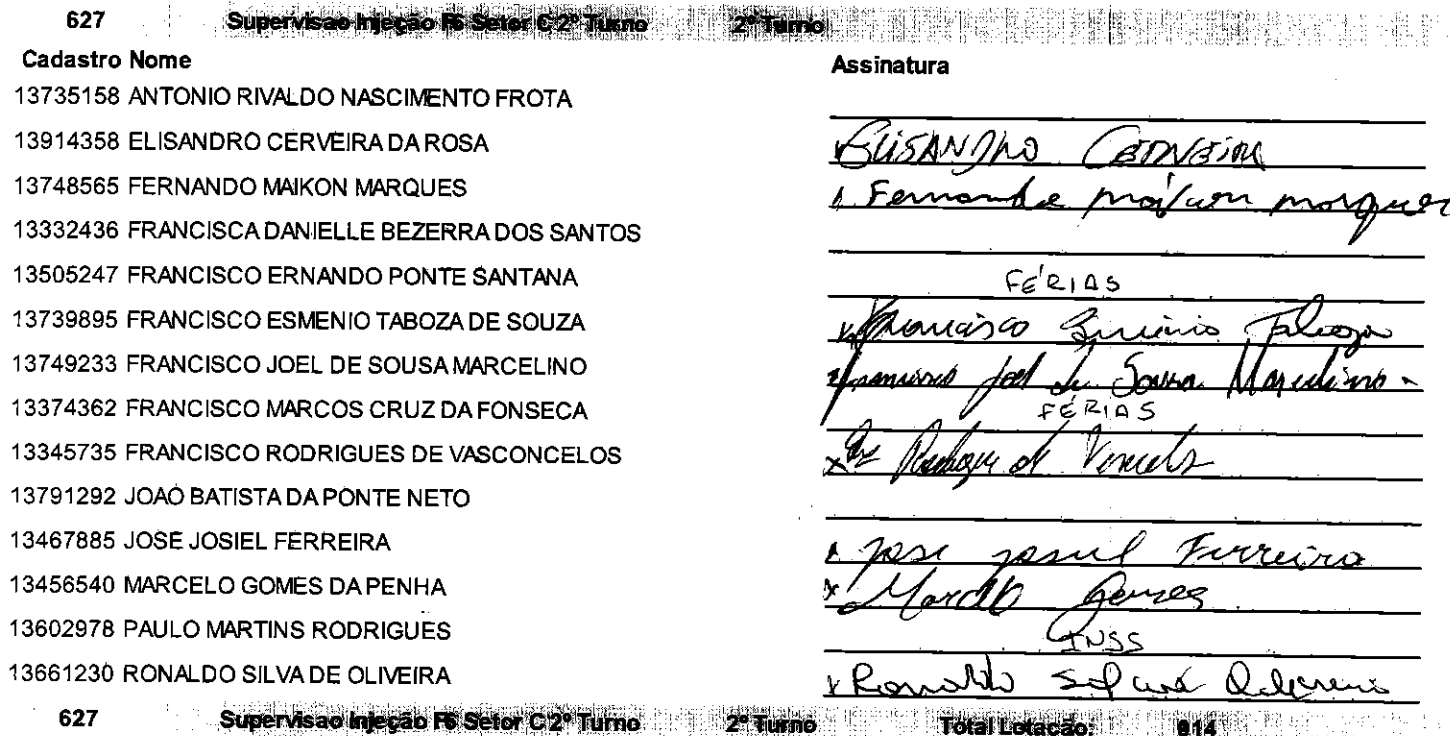 627 Supervisao Injeção F6 Setor C 2º Turno 2º Turno
Cadastro Nome Assinatura
13735158 ANTONIO RIVALDO NASCIMENTO FROTA
13914358 ELISANDRO CERVEIRA DA ROSA ELISANDRO CERVEIRA
13748565 FERNANDO MAIKON MARQUES Fernando maikon marques
13332436 FRANCISCA DANIELLE BEZERRA DOS SANTOS
13505247 FRANCISCO ERNANDO PONTE SANTANA FÉRIAS
13739895 FRANCISCO ESMENIO TABOZA DE SOUZA Francisco Esmenio Taboza
13749233 FRANCISCO JOEL DE SOUSA MARCELINO Francisco Joel de Sousa Marcelino
13374362 FRANCISCO MARCOS CRUZ DA FONSECA FÉRIAS
13345735 FRANCISCO RODRIGUES DE VASCONCELOS
13791292 JOAO BATISTA DA PONTE NETO
13467885 JOSE JOSIEL FERREIRA Jose josiel Ferreira
13456540 MARCELO GOMES DA PENHA Marcelo Gomes
13602978 PAULO MARTINS RODRIGUES INSS
13661230 RONALDO SILVA DE OLIVEIRA Ronaldo Silva
627 Supervisao Injeção F6 Setor C 2º Turno 2º Turno Total Lotação: 014